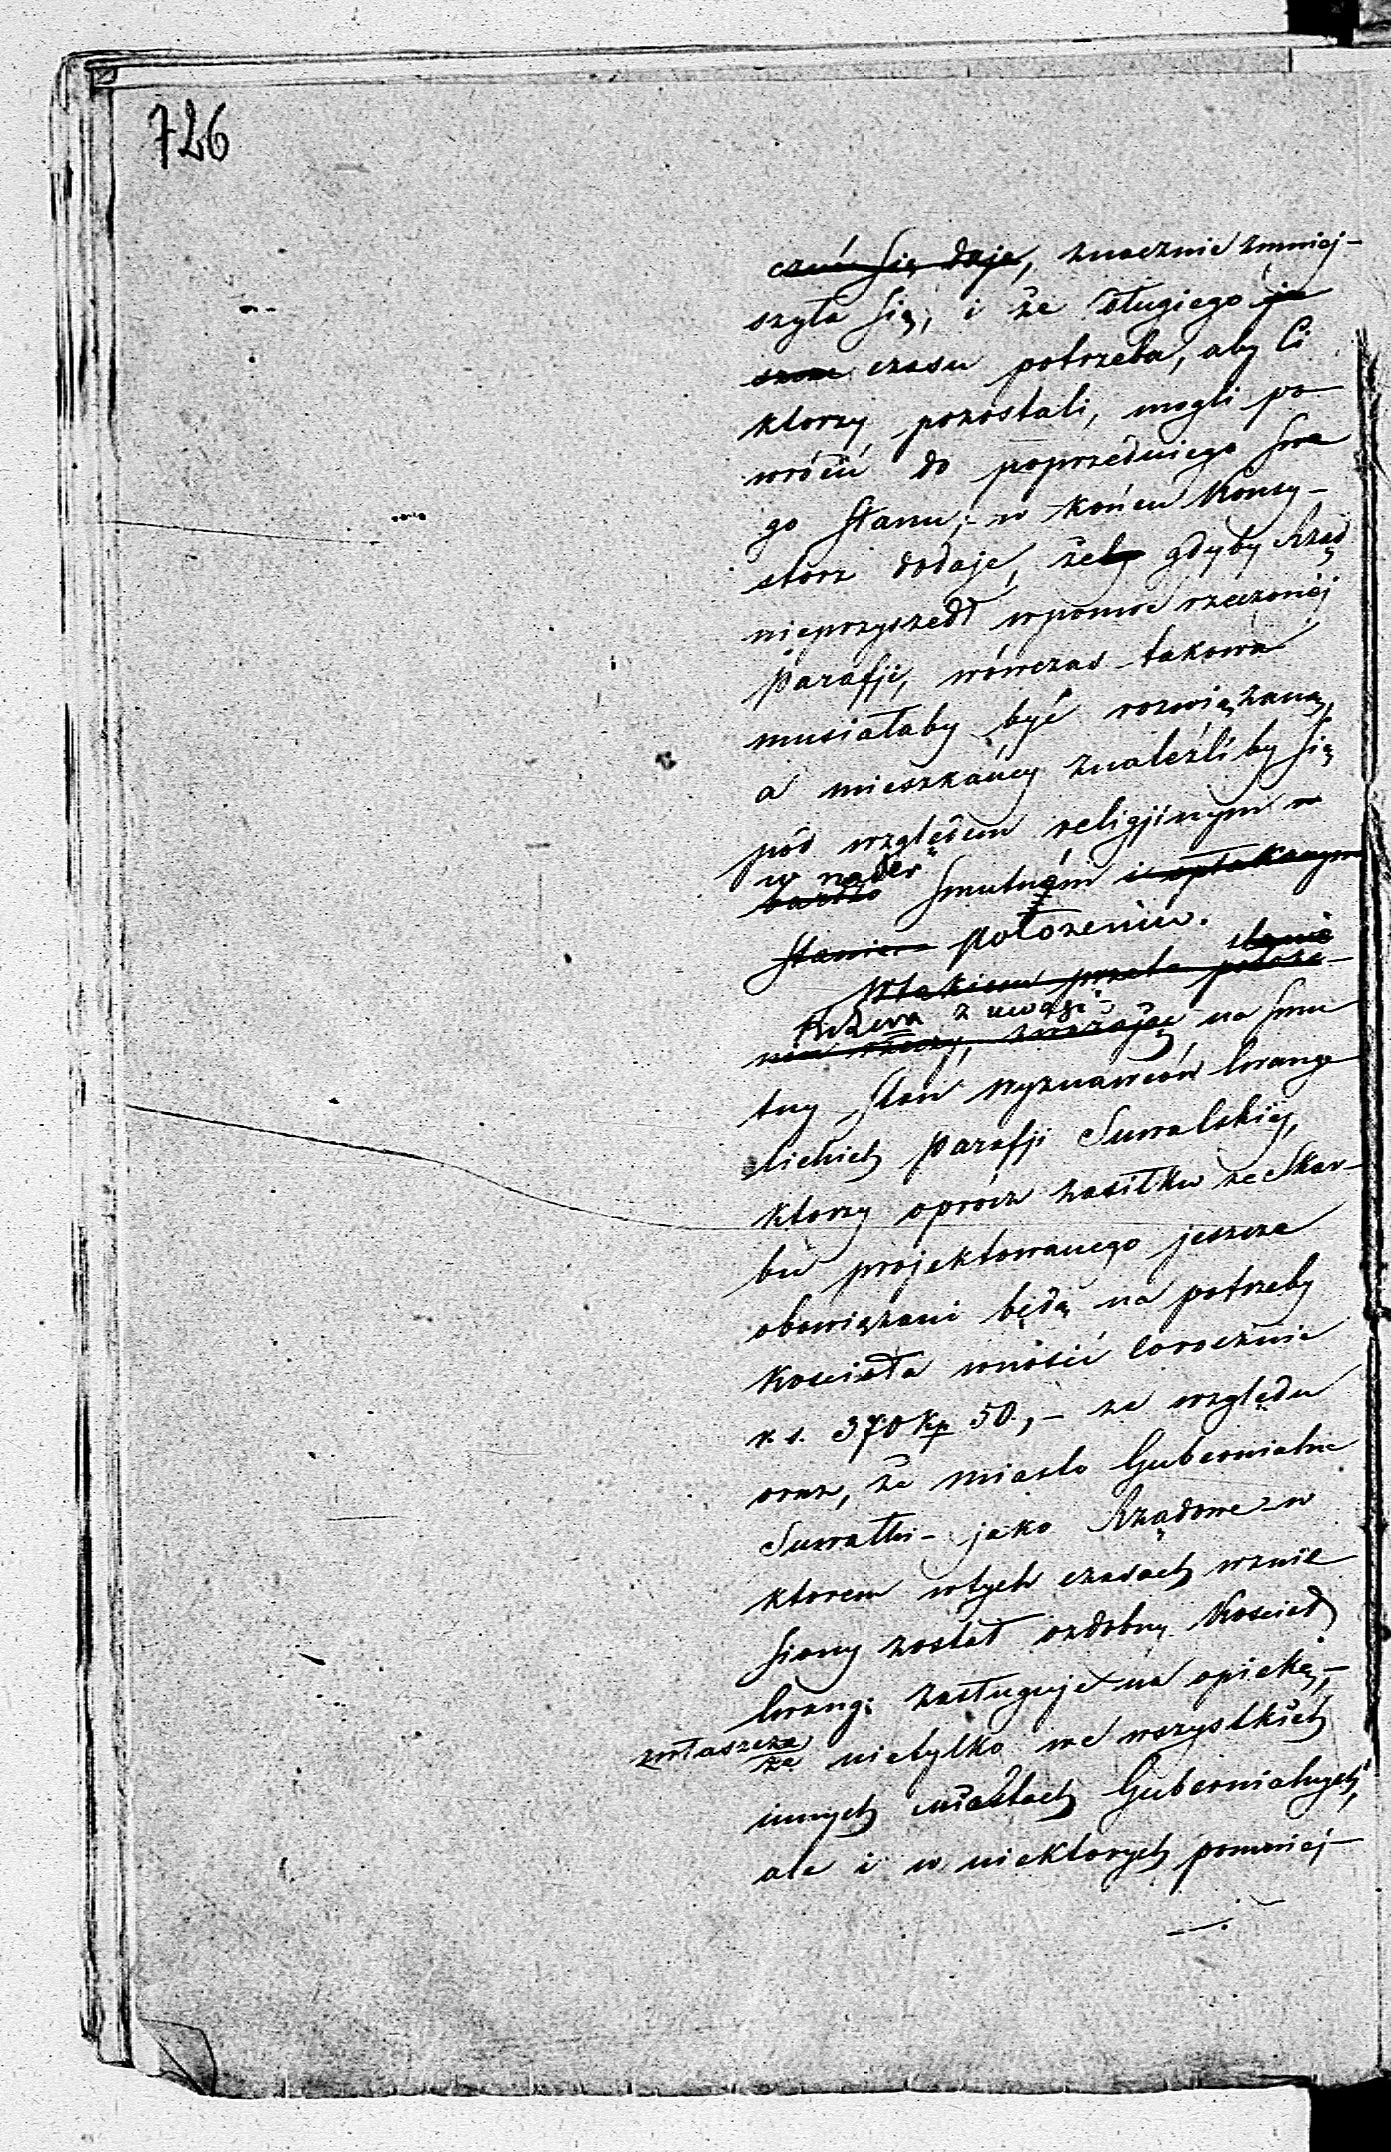 726
czuć się daje, znacznie zmniej-
szyła się, i że długiego je
szcze czasu potrzeba, aby Ci
ktorzy pozostali, mogli po-
wrócić do poprzedniego swe
go stanu; - w końcu Konsy-
storz dodaje, żeby gdyby Rząd
nieprzyszedł wpomoc rzeczonéj
Parafji, wówczas takowa
musiałaby być rozwiązaną,
a mieszkańcy znaleźliby się
pod względem religijnym w
w nader
bardzo smutném i opłakanym
stanie położeniu.
stanie
Wtakiem przeto położe-
Któżeva z uwagi
niu rzeczy, zważając na smu
tny stan Wyznawców Ewange
lickich Parafji Suwalskiéj,
ktorzy oprócz zasiłku ze Skar-
bu projektowanego jeszcze
obowiązani będą na potrzeby
Kościoła wnosić corocznie
r. s. 370 kp 50, - ze względu
oraz, że miasto Gubernialne
Suwałki - jako Rządowe - w
ktorem wtych czasach wznie
siony został ozdobny Kościoł
Ewang: zasługuje na opiekę, -
zwłaszcza
że nietylko we wszystkich
innych miastach Gubernialnych,
ale i w niektorych pomniej-